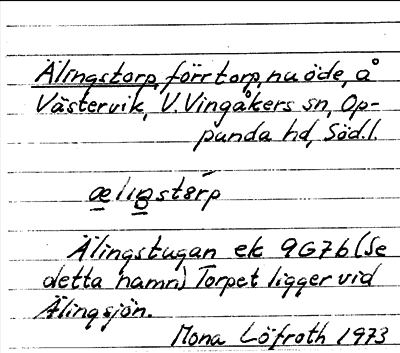 Älingstorp, förr torp, nu öde, å
Västervik, V. Vingåkers sn, Op-
punda hd, Södl.
æliŋstərp
Älingstugan ek 9G7b (Se
detta namn) Torpet ligger vid
Älingsjön.
Mona Löfroth 1973